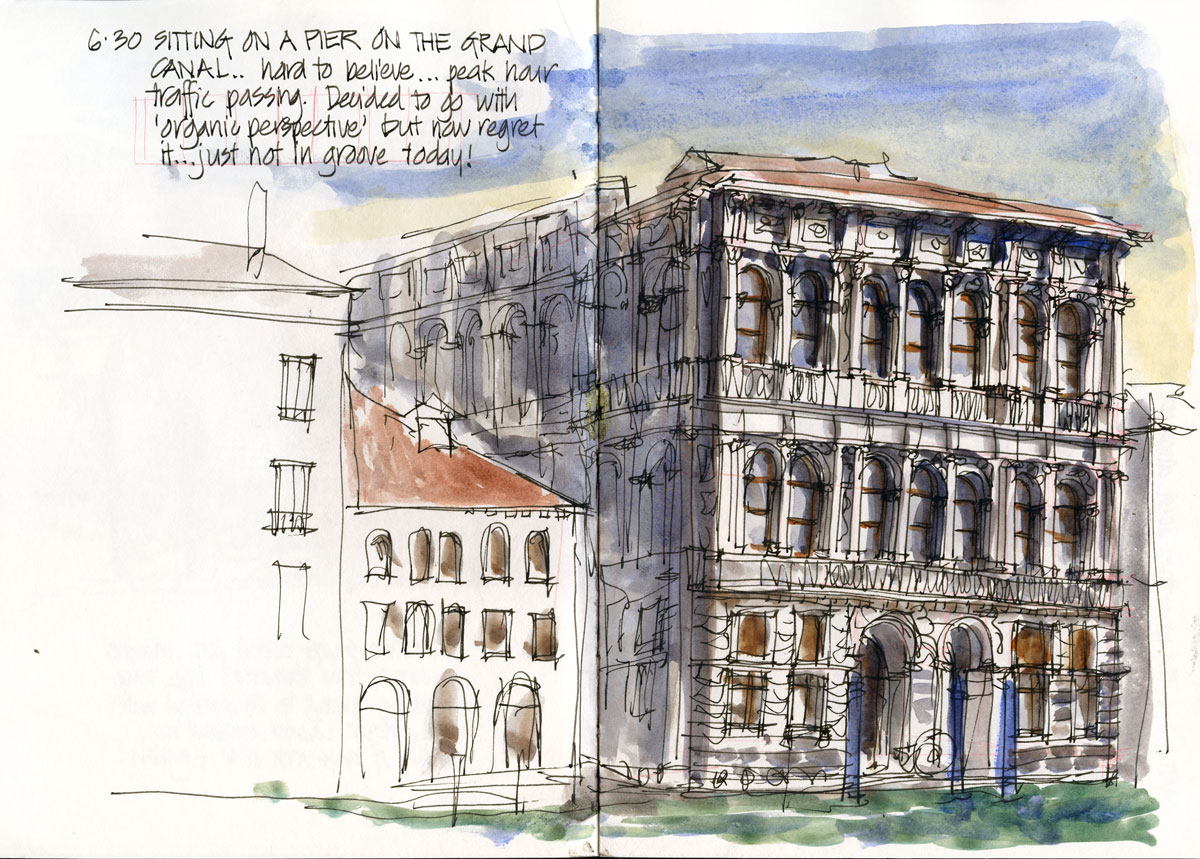 6·30 SITTING ON A PIER ON THE GRAND
CANAL.. hard to believe... peak hour
traffic passing. Decided to go with
'organic perspective' but now regret
it...just not in groove today!